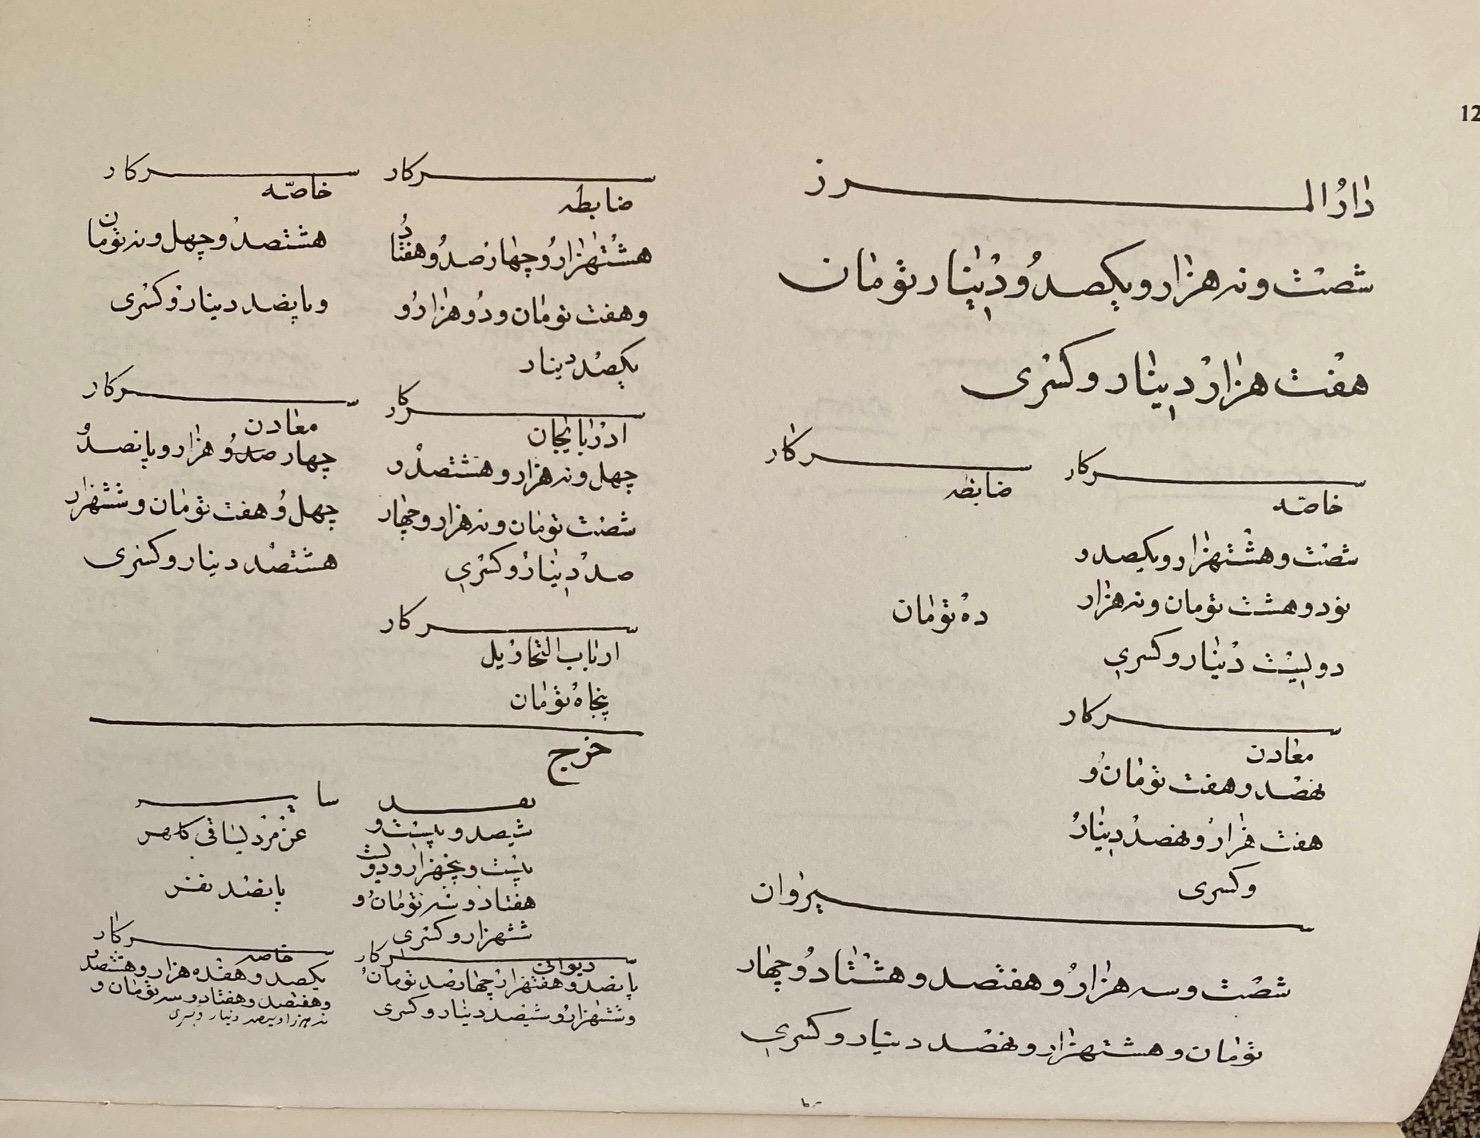 12
دارالمرز
شصت و نه هزار و یکصد و دینار تومان
هفت هزار دینار و کسری
سرکار
خاصّه
شصت و هشتهزار و یکصد و
نود و هشت تومان و نه هزار
دویست دینار و کسری
سرکار
ضابطه
ده تومان
سرکار
معادن
نهصد و هفت تومان و
هفت هزار و نهصد دینار
و کسری
شیروان
شصت و سه هزار و هفتصد و هشتاد و چهار
تومان و هشتهزار و نهصد دینار و کسری
سرکار
ضابطه
هشتهزار و چهارصد و هفتاد
و هفت تومان و دو هزار و
یکصد دینار
سرکار
خاصّه
هشتصد و چهل و نه تومان
و پانصد دینار و کسری
سرکار
ادربایجان
چهل و نه هزار و هشتصد و
شصت تومان و نه هزار و چهار
صد دینار و کسری
سرکار
معادن
چهار صد و هزار و پانصد و
چهل و هفت تومان و ششهزار
هشتصد دینار و کسری
سرکار
ارباب التحاویل
پنجاه تومان
خرج
نقد
ششصد و بیست و
بیست و پنجهزار و دویست
هفتاد و سه تومان و
ششهزار و کسری
سایر
پانصد نفر
سرکار
دیوانی
پانصد و هفتهزار چهارصد تومان
و ششهزار و ششصد دینار و کسری
سرکار
خاصه
یکصد و هفده هزار و هشتصد
و هفتصد و هفتاد و سه تومان و
دینار و کسری